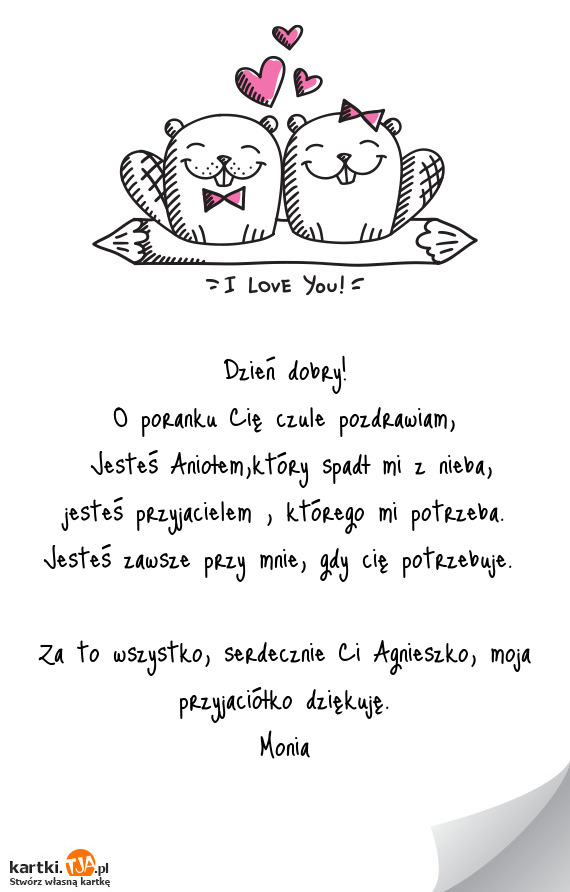 I LOVE YOU!
Dzień dobry!
O poranku Cię czule pozdrawiam,
Jesteś Aniołem,który spadł mi z nieba,
jesteś przyjacielem , którego mi potrzeba.
Jesteś zawsze przy mnie, gdy cię potrzebuje.
Za to wszystko, serdecznie Ci Agnieszko, moja
przyjaciółko dziękuję.
Monia
kartki.TJA.pl
Stwórz własną kartkę